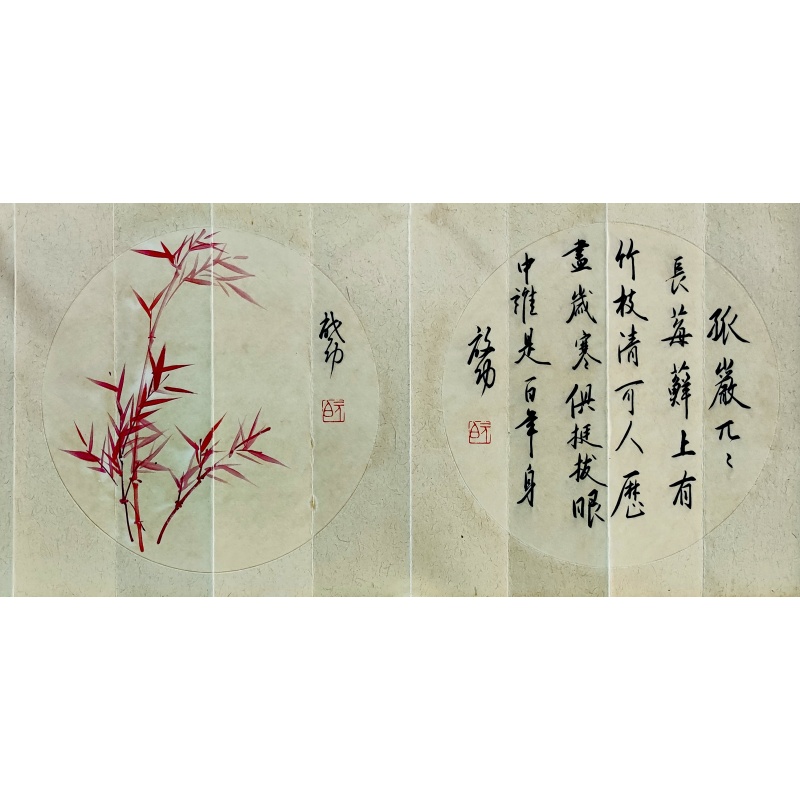 孤巖兀〻
長莓蘚上有
竹枝清可人歷
盡歲寒俱挺拔眼
中誰是百年身
啟功
元白
啟功
元白